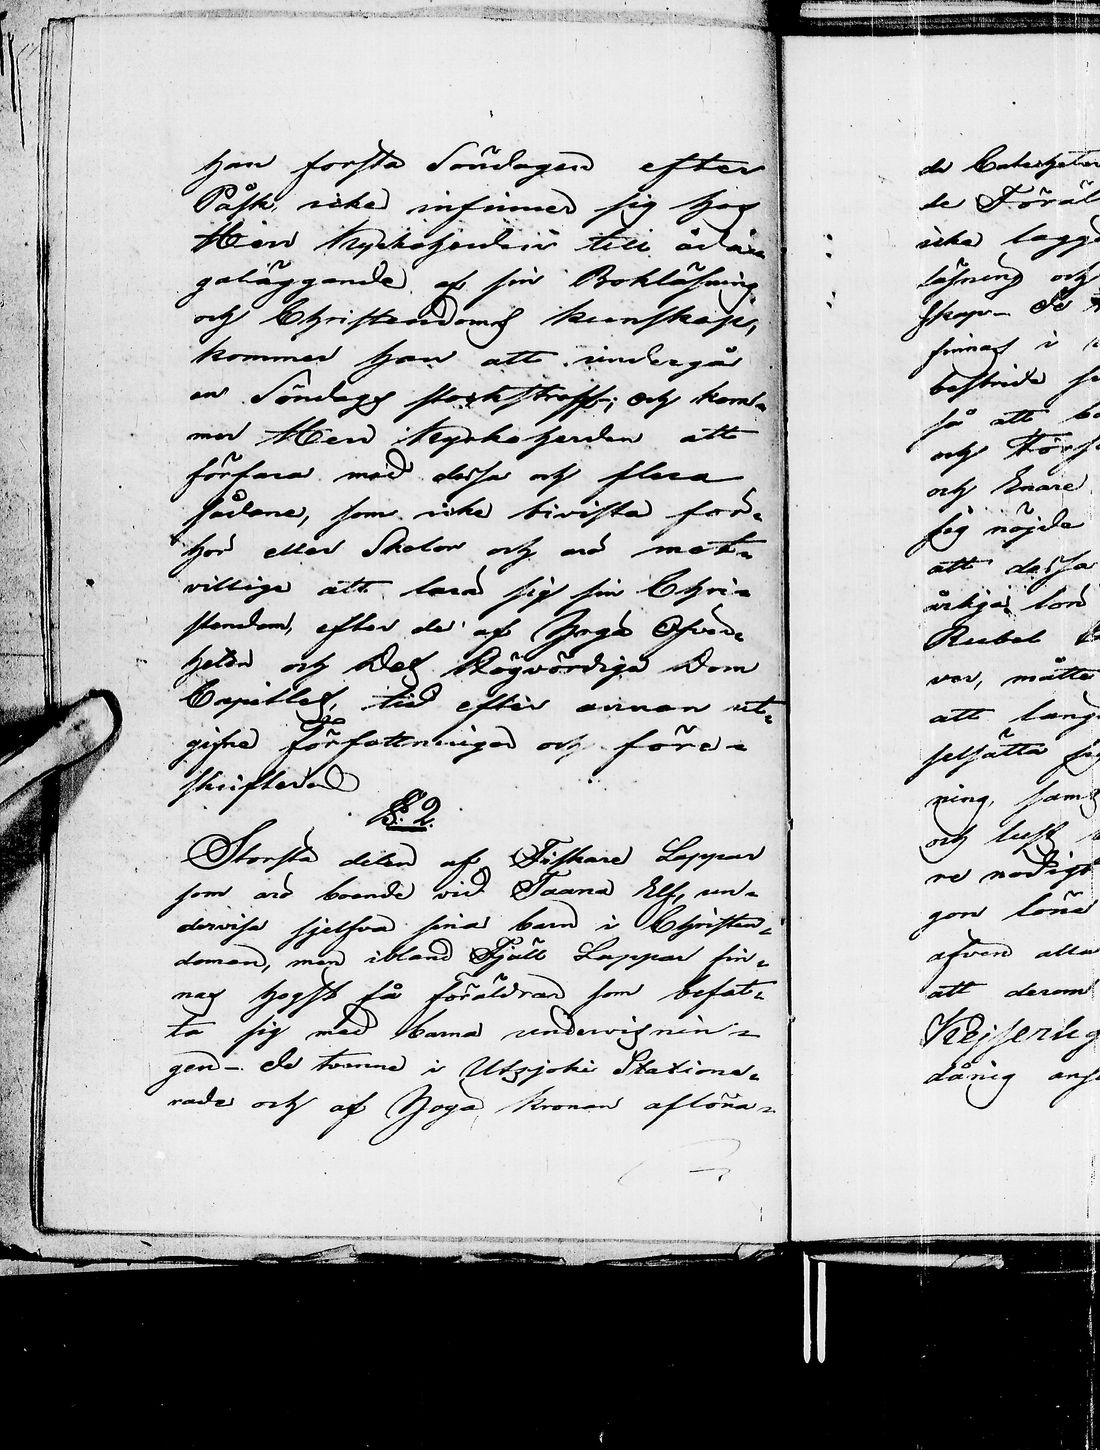 han första Söndagen efter
Påsk, icke infinner sig hos
Herr Kyrkoherden till ådaga
galäggande af sin Bokläsning
och Christendoms kunskap,
kommer han att undergå
en Söndags stockstraff; och kom-
mer Herr Kyrkoherden att
förfara med dessa och flera
sådane, som icke bivista för-
hör eller Skolor och äro mot-
villige att lära sig sin Chri-
stendom, efter de af Höga Öfver-
heten och Des Högvördiga Dom
Capitlet, tid efter annan ut-
gifne författningar och före-
skrifter
§. 2.
Största delen af Fiskare Lappar
som äro boende vid Taana Elf, un-
dervisa sjelfva sina barn i Christen-
domen, men ibland Fjäll Lappar fin-
nas högst få föräldrar som befat-
ta sig med barna undervisnin-
gen - De tvenne i Utsjoki Statione-
rade och af Höga Kronan aflöna-
de Catecheter
de Föräl
icke lagga
läsning och
skap - De
finnas i
bestrida
så att
och För
och Enare
sig nöjde
att dessa
årliga lön
Rubel
ver, måtte
att lang
ning, sam
och lust
re nödigt
gon löna
äfven alla
att derom
Kejserlig
dånig